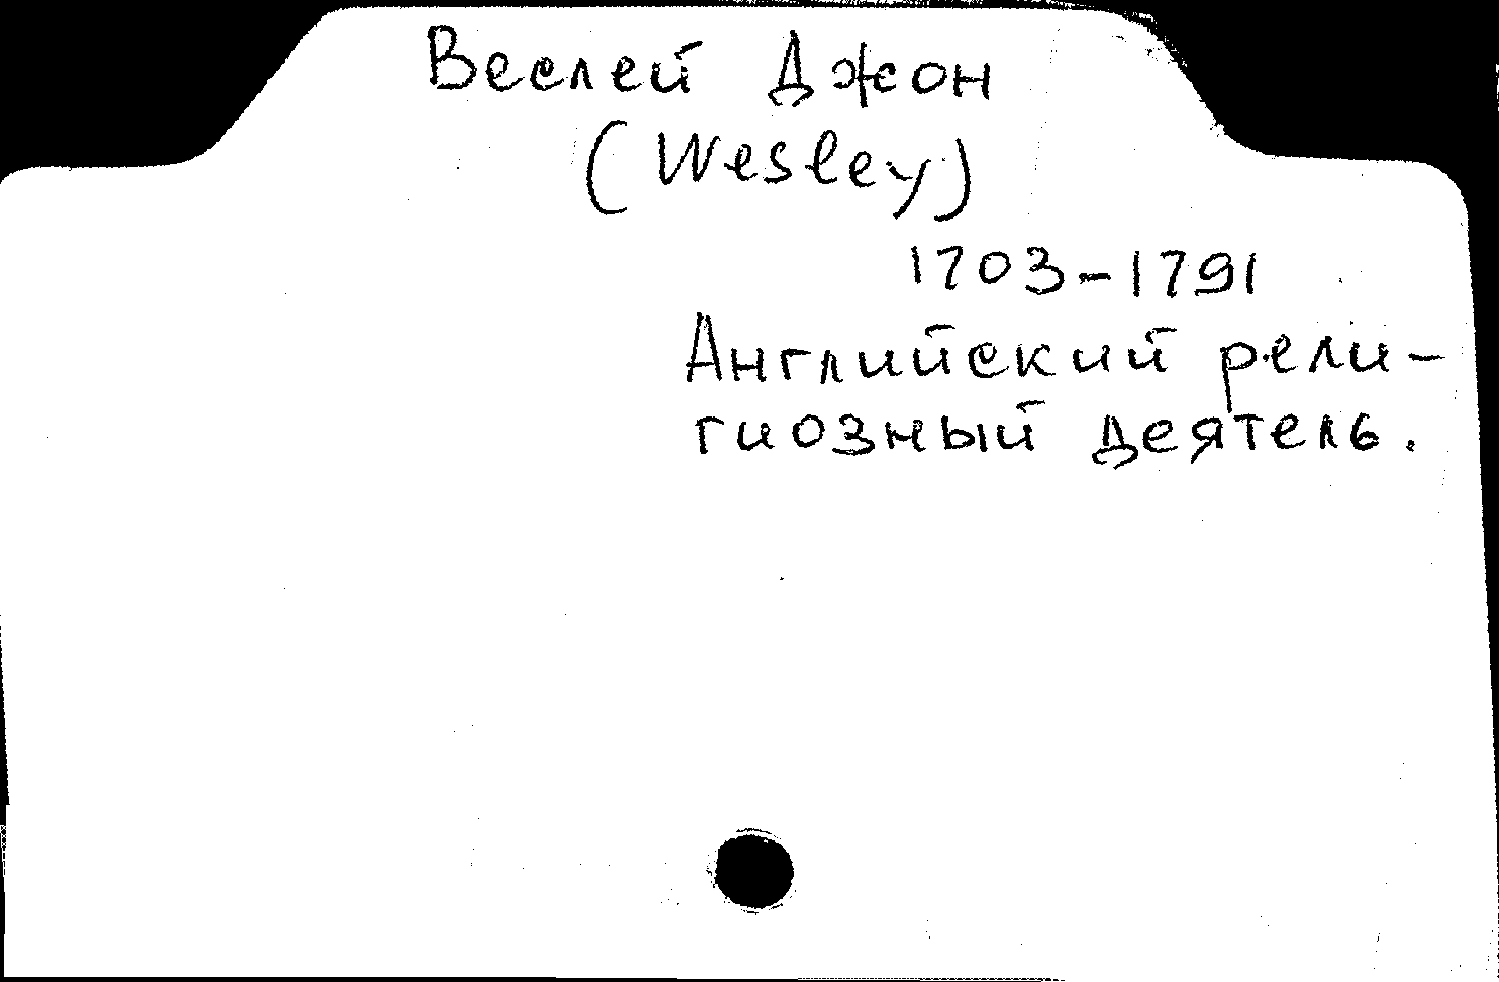 Веслей Джон
(Wesley)
1703-1791
Английский рели-
гиозный деятель.